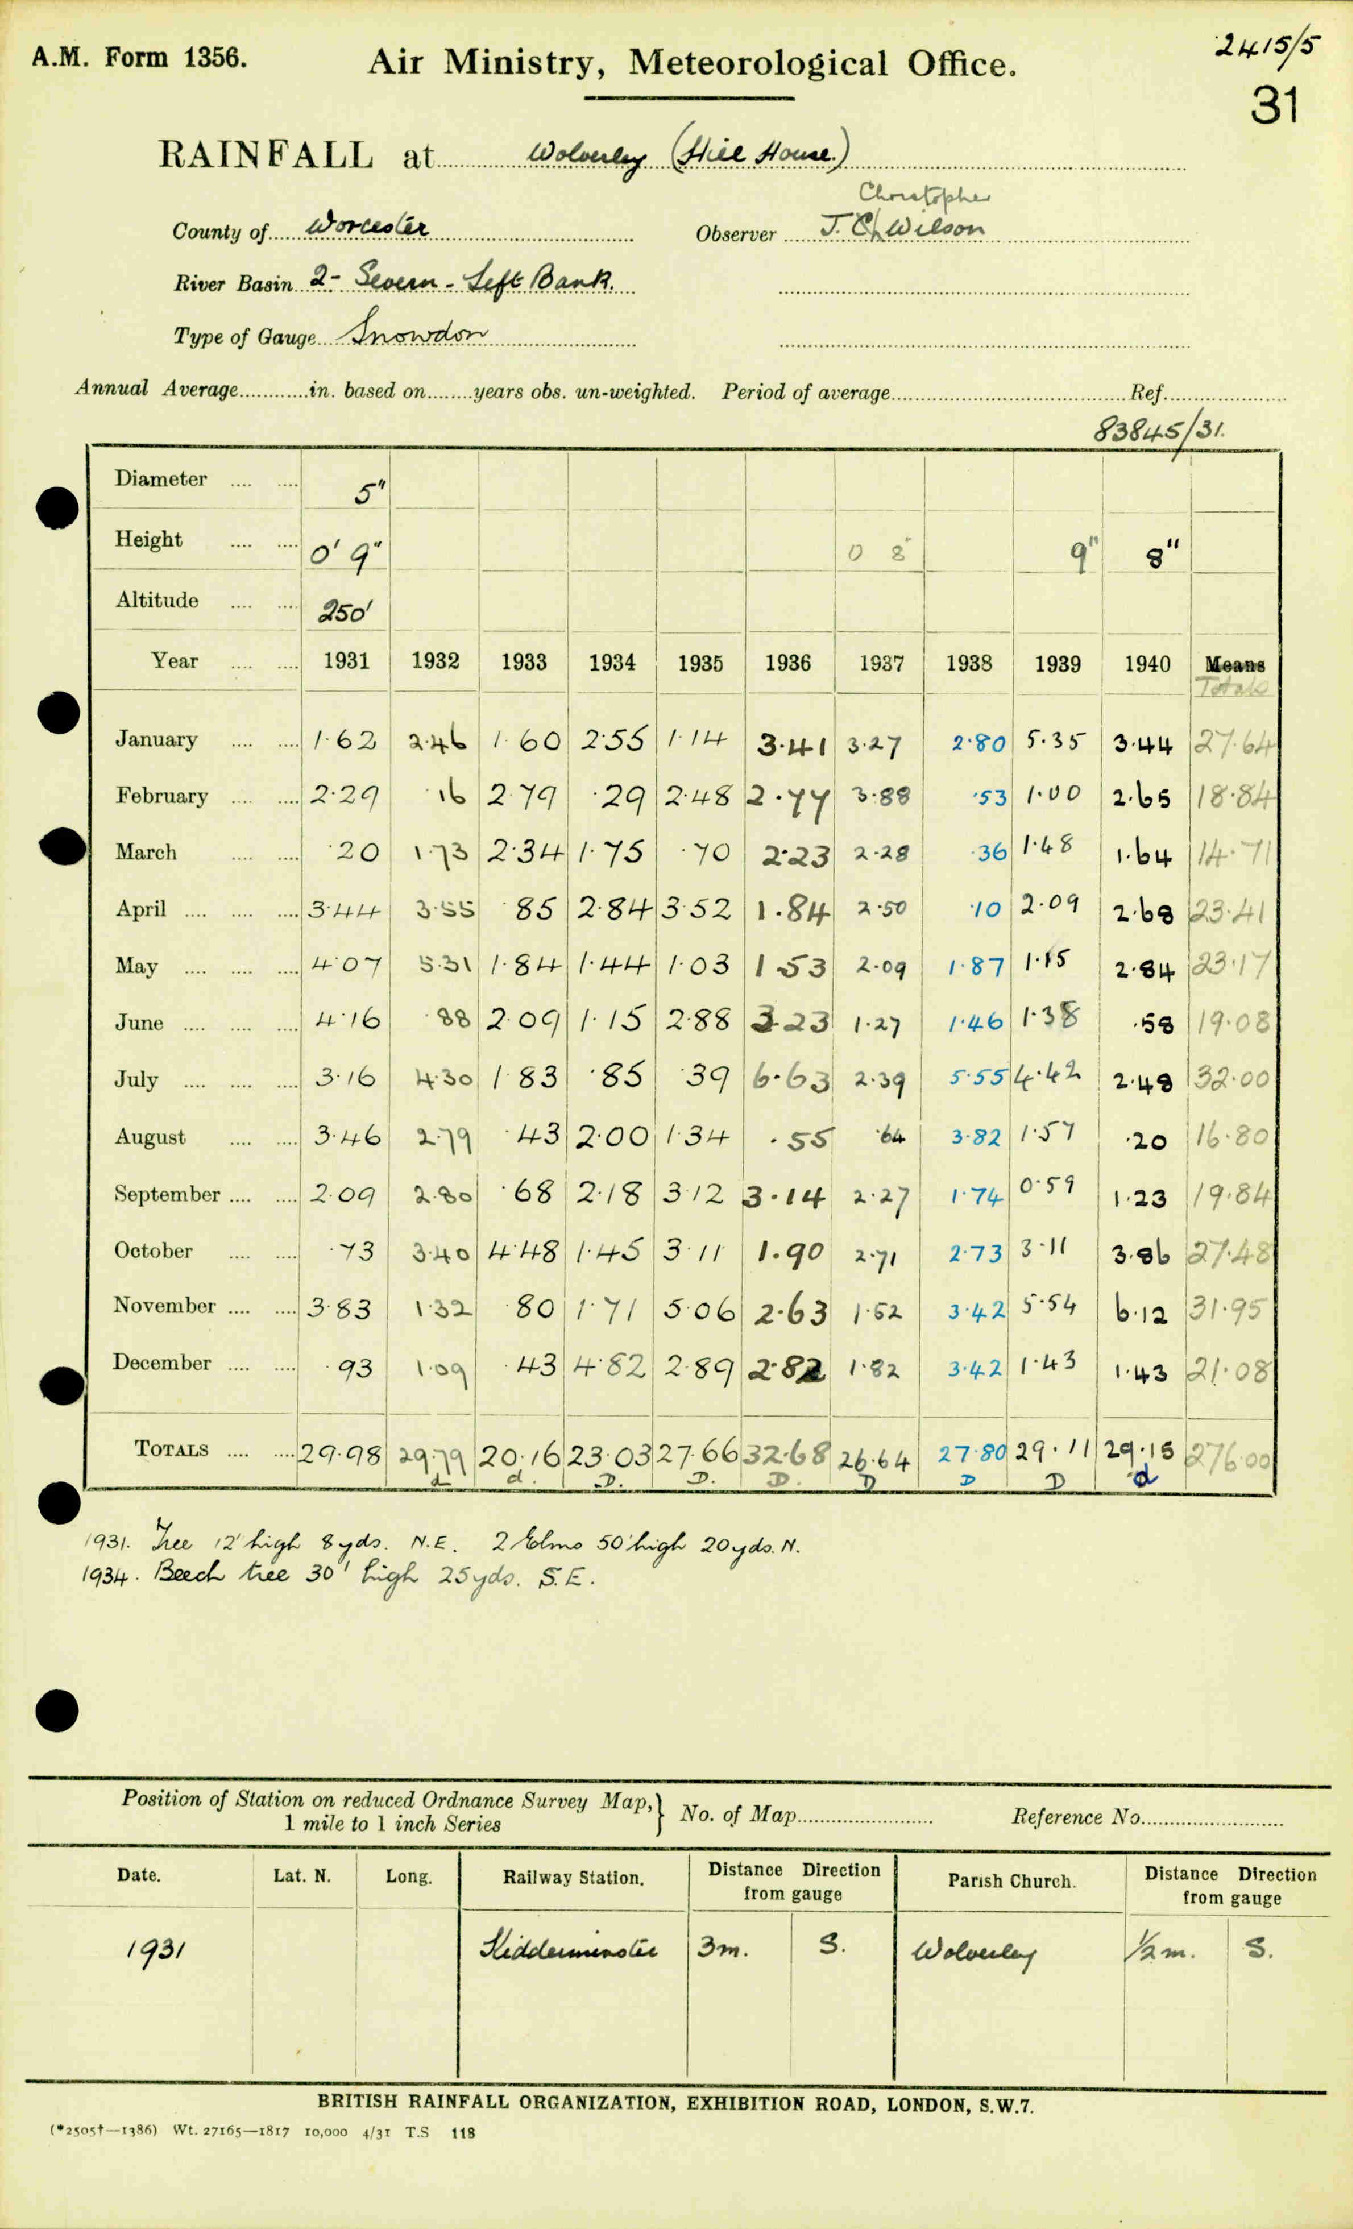 2415/5
A.M. Form 1356. Air Ministry, Meteorological Office.
31
RAINFALL at Wolverley (Hill House.)
Christopher
County of Worcester Observer J. Ch. Wilson
River Basin 2- Severn - Left Bank.
Type of Gauge Snowdon
Annual Average in. based on years obs. un-weighted. Period of average Ref.
83845/31.
Diameter 5"
Height 0' 9" 0 8" 9" 8"
Altitude 250'
Year 1931 1932 1933 1934 1935 1936 1937 1938 1939 1940 Means
Totals
January 1·62 2·46 1·60 2·55 1·14 3·41 3·27 2·80 5·35 3·44 27·64
February 2·29 ·16 2·79 ·29 2·48 2·77 3·88 ·53 1·00 2·65 18·84
March ·20 1·73 2·34 1·75 ·70 2·23 2·28 ·36 1·48 1·64 14·71
April 3·44 3·55 ·85 2·84 3·52 1·84 2·50 ·10 2·09 2·68 23·41
May 4·07 5·31 1·84 1·44 1·03 1·53 2·09 1·87 1·15 2·84 23·17
June 4·16 ·88 2·09 1·15 2·88 3·23 1·27 1·46 1·38 ·58 19·08
July 3·16 4·30 1·83 ·85 ·39 6·63 2·39 5·55 4·42 2·48 32·00
August 3·46 2·79 ·43 2·00 1·34 ·55 ·64 3·82 1·57 ·20 16·80
September 2·09 2·80 ·68 2·18 3·12 3·14 2·27 1·74 0·59 1·23 19·84
October ·73 3·40 4·48 1·45 3·11 1·90 2·71 2·73 3·11 3·86 27·48
November 3·83 1·32 ·80 1·71 5·06 2·63 1·52 3·42 5·54 6·12 31·95
December ·93 1·09 ·43 4·82 2·89 2·82 1·82 3·42 1·43 1·43 21·08
TOTALS 29·98 29·79 20·16 23·03 27·66 32·68 26·64 27·80 29·11 29·15 276·00
d d. D. D. D. D D D d
1931. Tree 12' high 8 yds. N.E. 2 Elms 50' high 20 yds. N.
1934. Beech tree 30' high 25 yds. S.E.
Position of Station on reduced Ordnance Survey Map, } No. of Map Reference No.
1 mile to 1 inch Series
Date. Lat. N. Long. Railway Station. Distance Direction from gauge Parish Church. Distance Direction from gauge
1931 Kidderminster 3m. S. Wolverley ½ m. S.
BRITISH RAINFALL ORGANIZATION, EXHIBITION ROAD, LONDON, S.W.7.
(*2505†—1386) Wt. 27165—1817 10,000 4/31 T.S 118